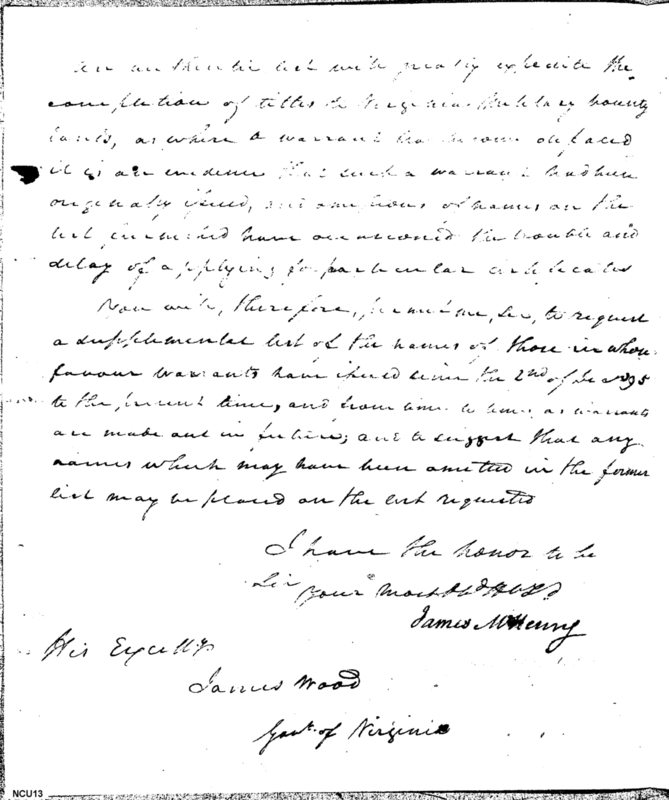 an authentic list will greatly expedite the
completion of titles to Virginia Military bounty
lands, as where a warrant has become defaced
it is an evidence that such a warrant had been
originally issued, and omissions of names on the
list furnished have occasioned the trouble and
delay of applying for particular certificates
You will, therefore, permit me, Sir, to request
a supplemental list of the names of those in whose
favour warrants have issued since the 2nd of
to the present time, and from time to time, as warrants
are made out in future; and to suggest that any
names which may have been omitted in the former
list may be placed on the list requested
I have the honor to be
Sir your most
James McHenry
His Excelly
James Wood
Govr. of Virginia
NCU13